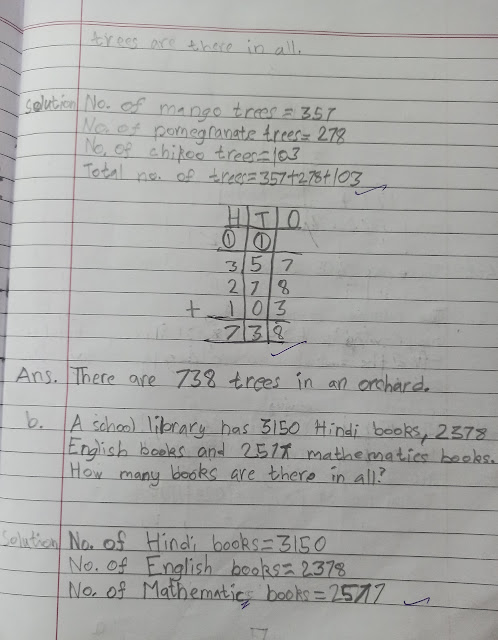 trees are there in all.
Solution No. of mango trees = 357
No. of pomegranate trees = 278
No. of chikoo trees = 103
Total no. of trees = 357+278+103
H T O
1 1
3 5 7
2 7 8
+ 1 0 3
7 3 8
Ans. There are 738 trees in an orchard.
b. A school library has 3150 Hindi books, 2378
English books and mathematics books.
How many books are there in all?
Solution No. of Hindi books = 3150
No. of English books = 2378
No. of Mathematics books =